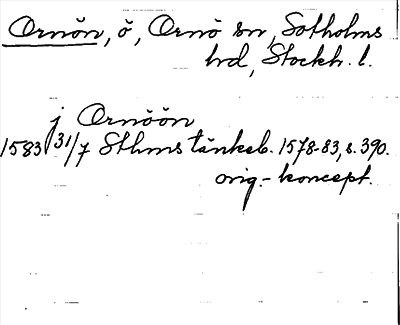 Ornön, ö, Ornö sn, Sotholms
hd, Stockh. l.
j Ornöön
1583 31/7 Sthms tänkeb. 1578-83, s. 390.
orig.-koncept.